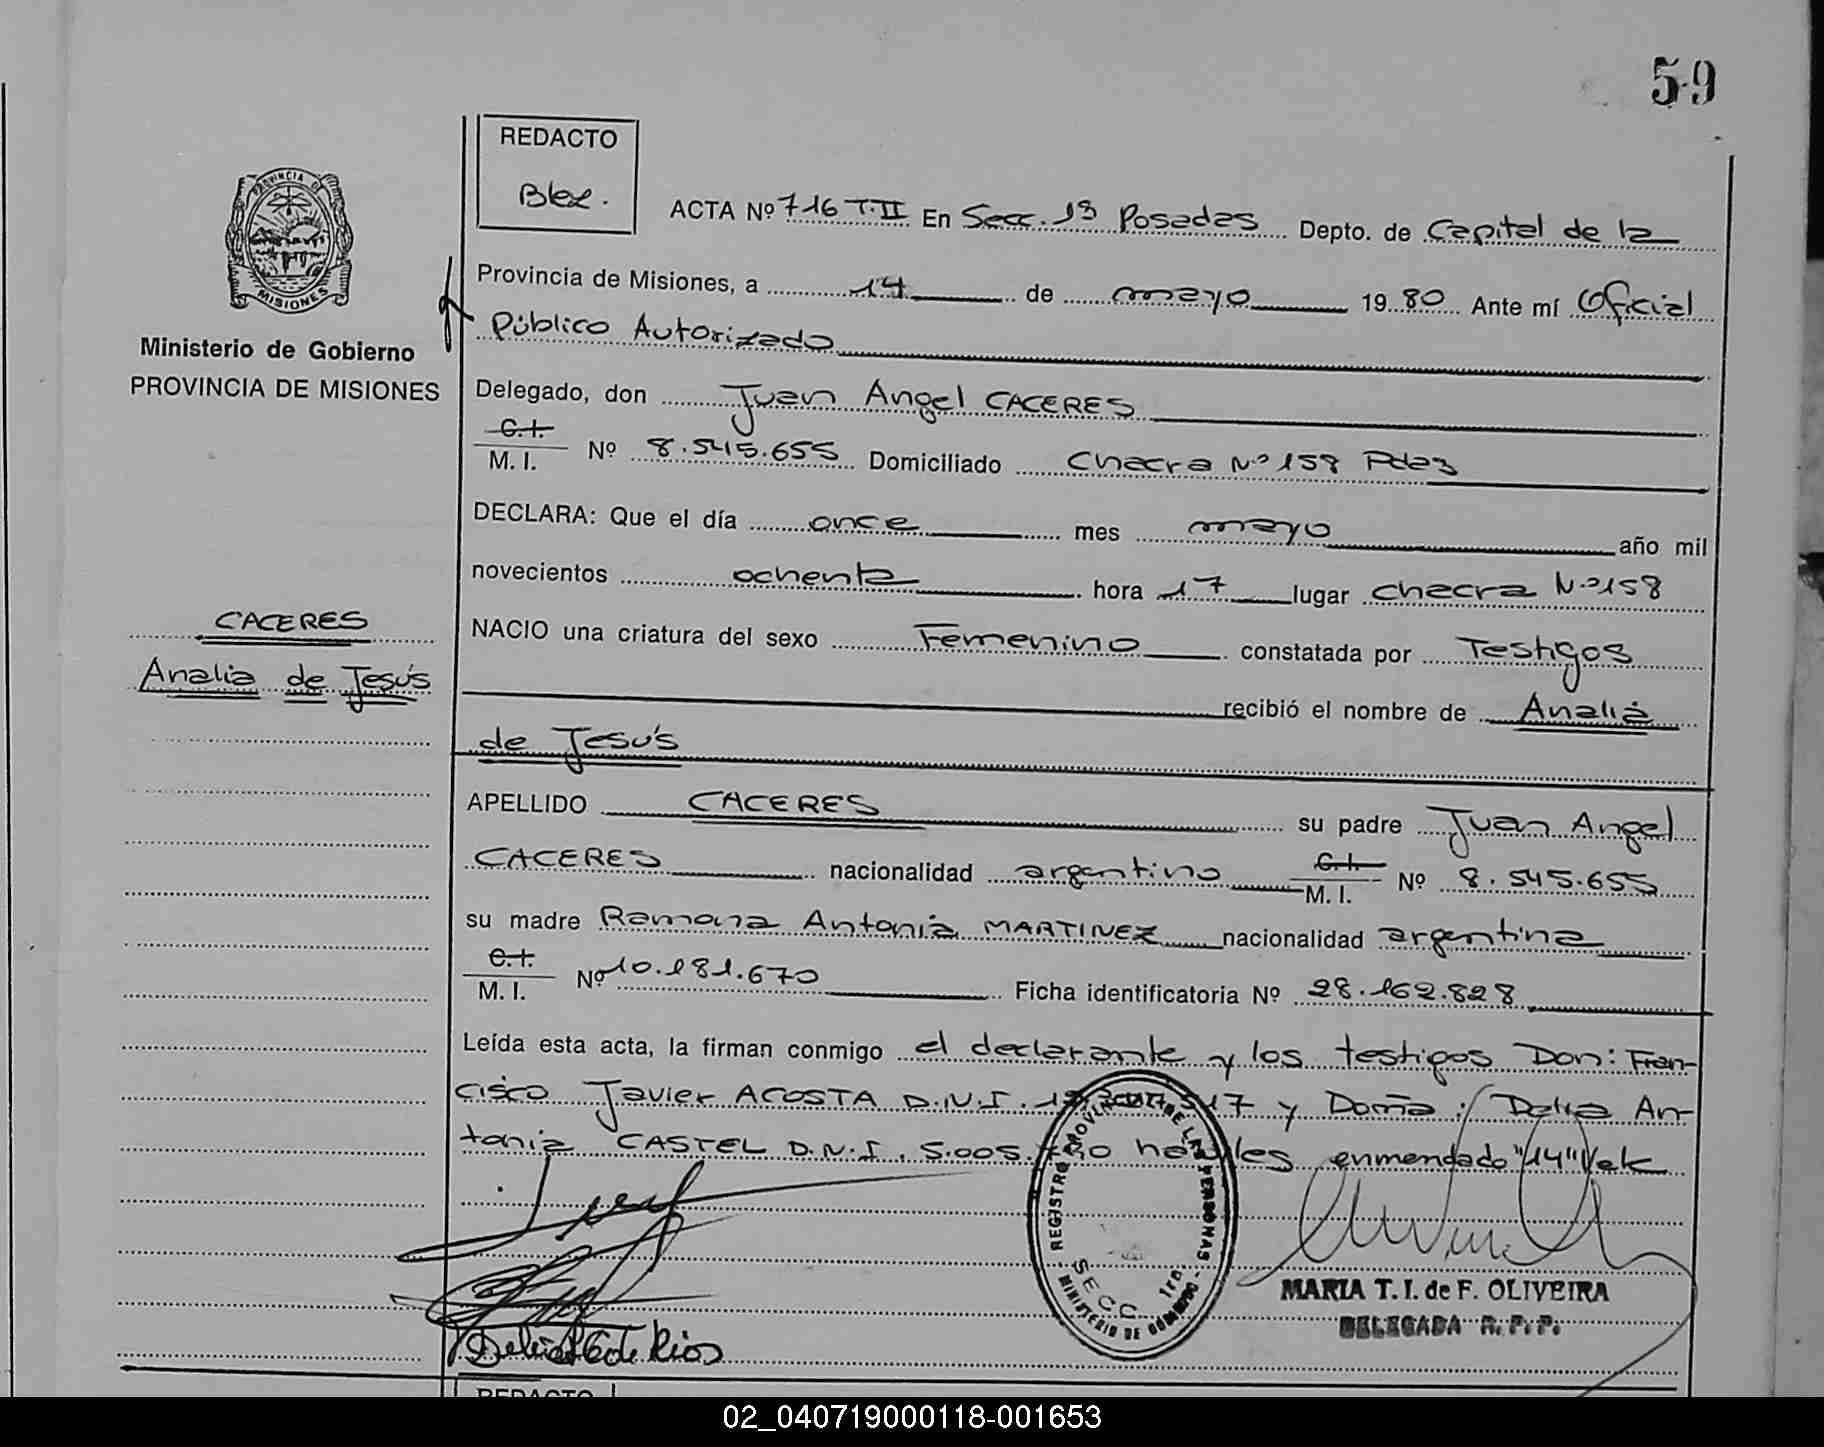 59
REDACTO
Blex.
ACTA Nº 716 T.II En Secc. 1ª Posadas Depto. de Capital de la
Provincia de Misiones, a 14 de mayo 1980 Ante mí Oficial
Público Autorizado
Ministerio de Gobierno
PROVINCIA DE MISIONES
Delegado, don Juan Angel CACERES
C.I.
M. I. Nº 8.545.655 Domiciliado Chacra Nº 158 Pdas
DECLARA: Que el día once mes mayo año mil
novecientos ochenta hora 17 lugar chacra Nº 158
CACERES
Analia de Jesús
NACIO una criatura del sexo Femenino constatada por Testigos
recibió el nombre de Analia
de Jesús
APELLIDO CACERES su padre Juan Angel
CACERES nacionalidad argentino C.I. M. I. Nº 8.545.655
su madre Ramona Antonia MARTINEZ nacionalidad argentina
C.I.
M. I. Nº 10.181.670 Ficha identificatoria Nº 28.162.828
Leída esta acta, la firman conmigo el declarante y los testigos Don: Fran-
cisco Javier ACOSTA D.N.I. y Doña: Delia An-
tonia CASTEL D.N.I. 5.005. enmendado "14" Vale
PROVINCIA DE MISIONES
REGISTRO PROVINCIAL DE LAS PERSONAS
SECC. 1ra.
MINISTERIO DE GOBIERNO
MARIA T. I. de F. OLIVEIRA
DELEGADA R. P. P.
Delia de Rios
REDACTO
02_040719000118-001653